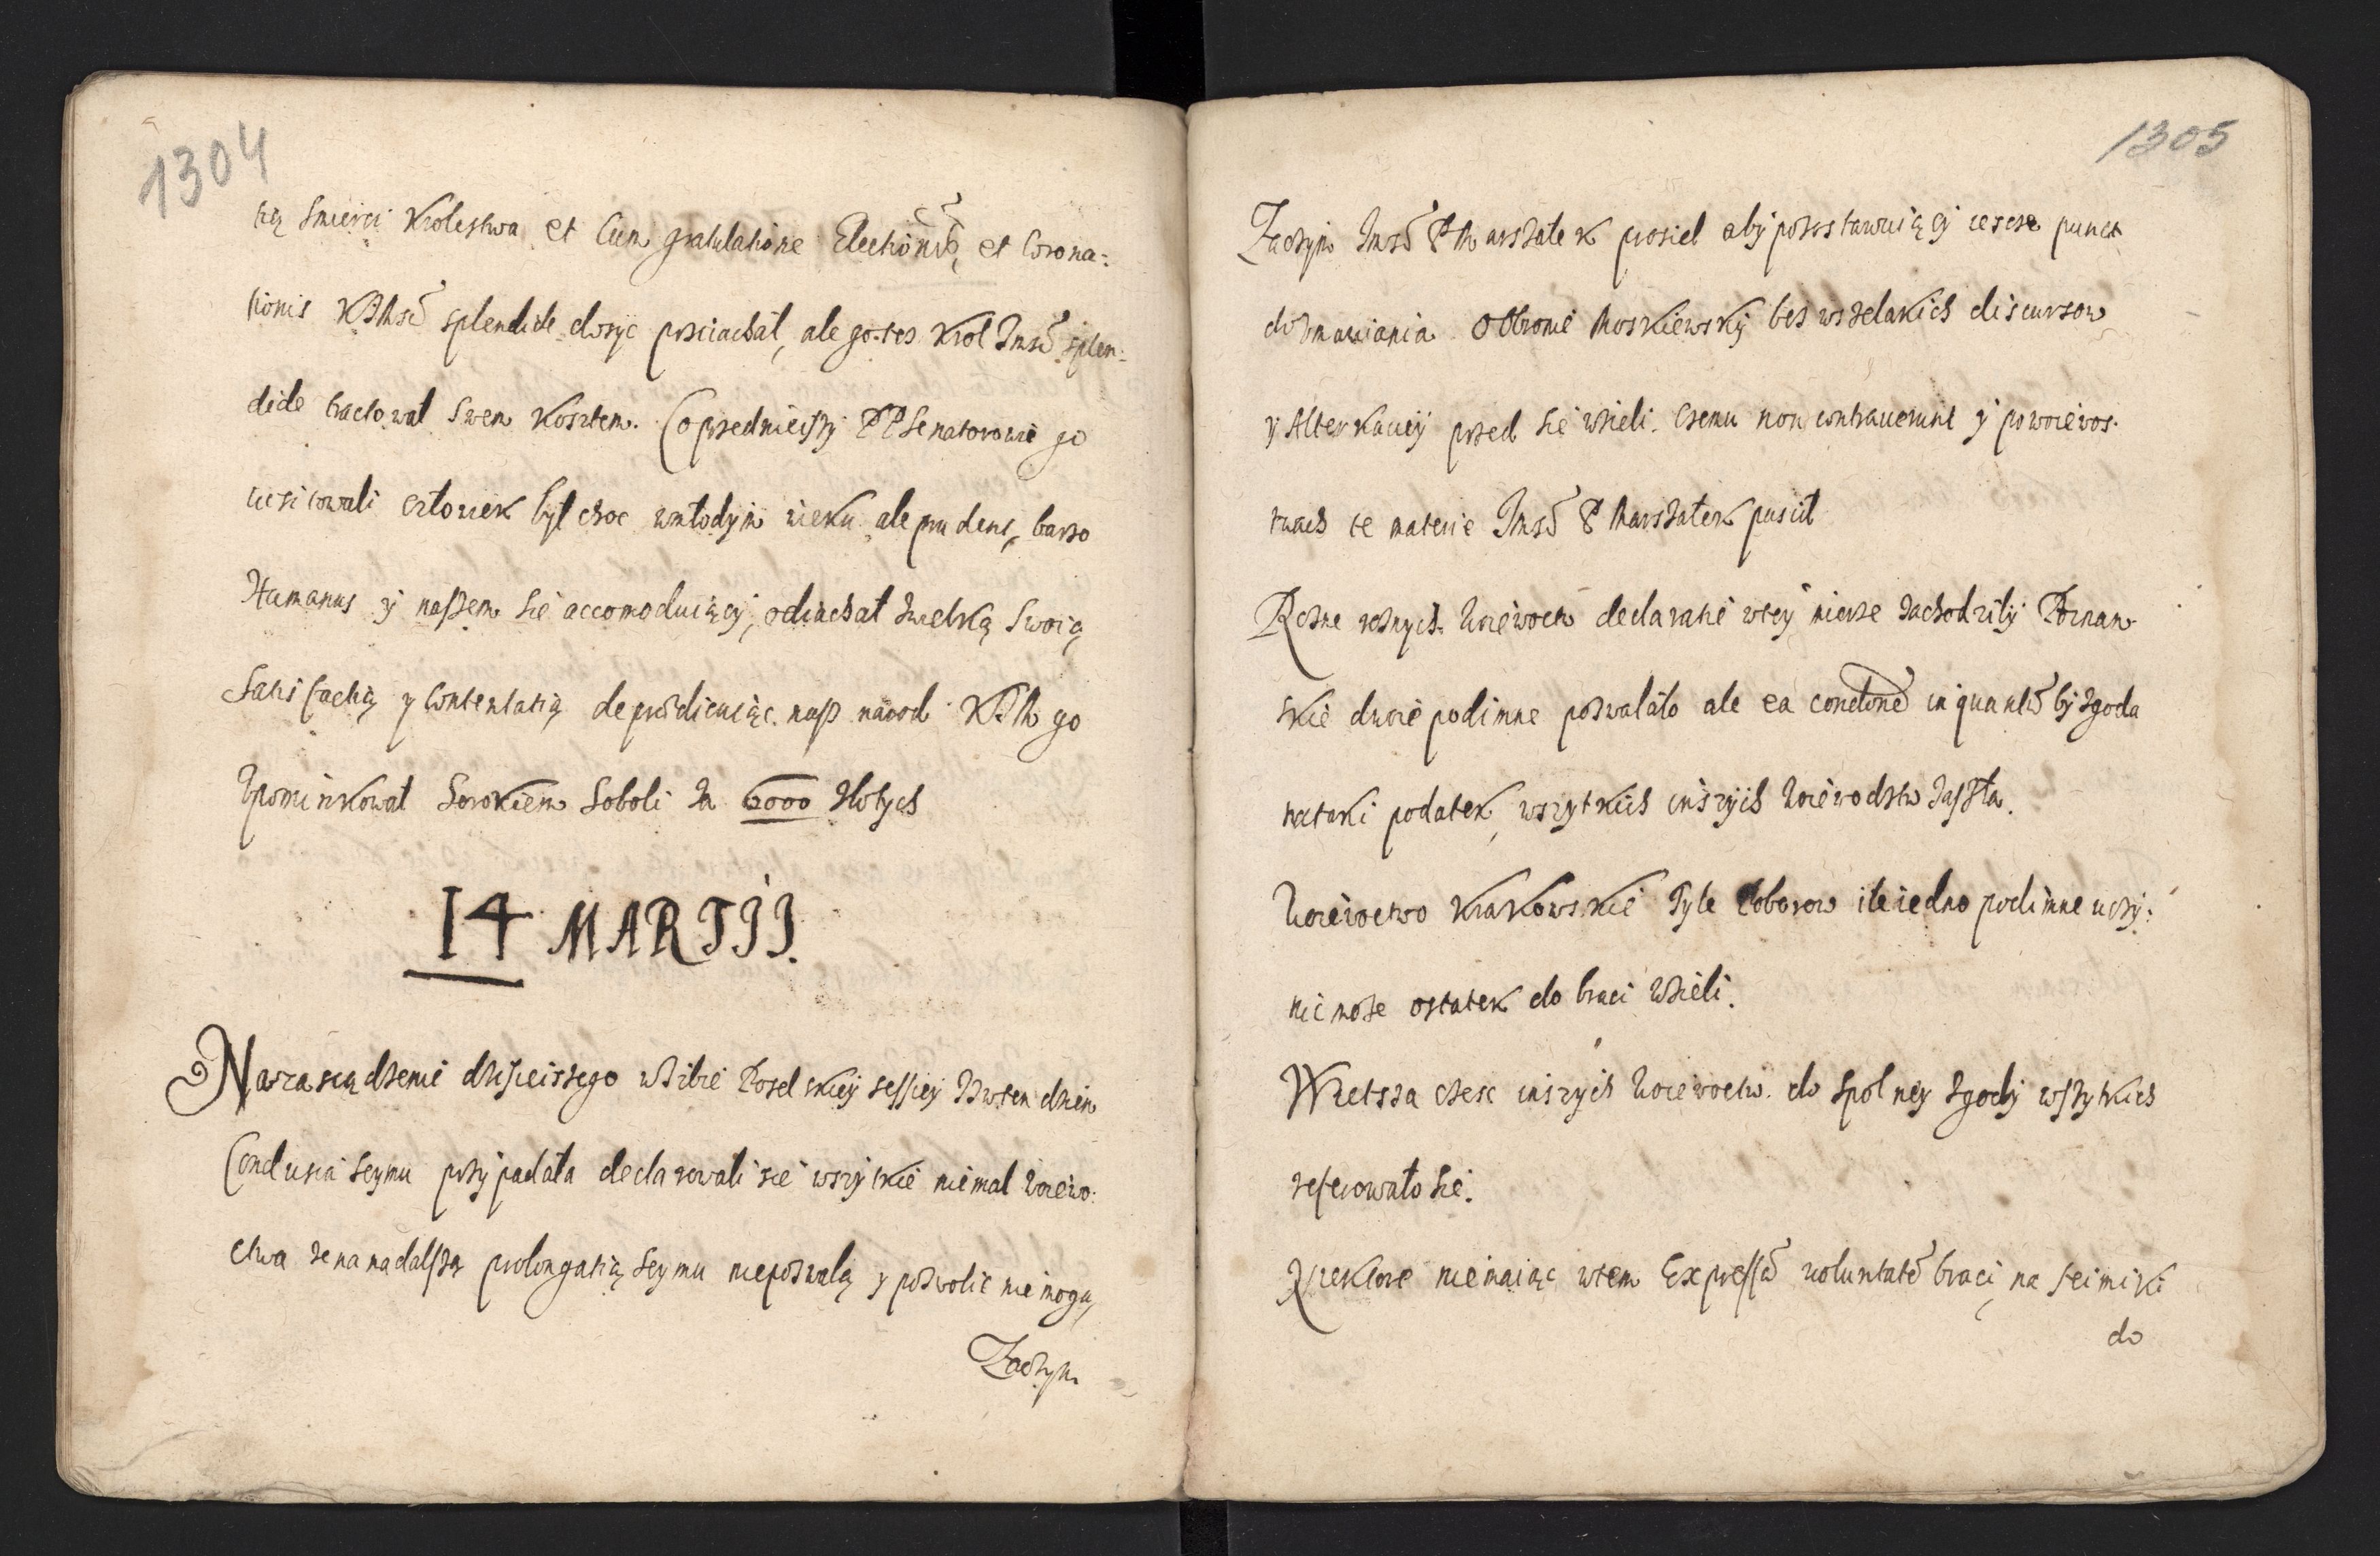 1304
tią smierci Krolestwa et Cum gratulatione Electionis, et Corona:
tionis KJMsci splendide dosyc prziachał, ale go tes Krol Jmsć splen:
dide tractował swem Kosztem. Coprzednieiszy PPSenatorowie go
człowiek był choc wmłodym wieku ale prudens, barzo
Humanus y naszem się accomoduiący, odiachał zwielką swoią
Satisfactią y Contentatią deprædicuiąc nasz narod KJM go
Upominkował Sorokiem Soboli za 6000 złotych
14 MARTIJ.
Narzasiądzenie dzisieiszego wIzbie Poselskiey sessiey Izwten dzien
Conclusia seymu przypadała declarowali się wszytkie niemal woiewo:
ctwa ze na nadalszą prolongatią seymu niepozwalą y pozwolic niemogą,
Zaczym
1305
Zaczym Jmsć P Marszałek prosieł aby pozostawuiący ieszcze punct
doZmawiania O Obronie Moskiewsky bes wszelakich discursow
y Alterkacyy przed się wzieli. czemu non contrauenerunt y powoiewos:
twach te materie Jmsć P Marszałek puscił
Rozne roznych Woiewoctw declaratie wtey mierze zachodziły Poznan
skie dwoie podimne pozwalało ale ea conditione inquantum by zgoda
nataki podatek, wszytkich inszych woiewodztw zaszła.
Woiewoctwo Krakowskie Tyle Poborow ile iedno podimne uczy:
nic może ostatek do braci Wzieli.
Wietsza czesc inszych woiewoctw do spolney zgody wszytkich
referowało się.
Niektore niemaiąc wtem Expressam uoluntatem braci, na seimiki
do